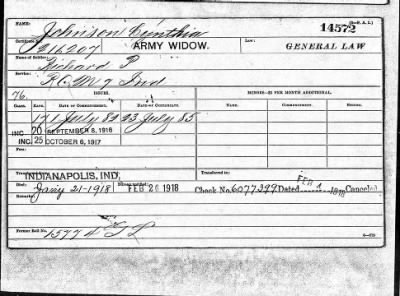 (3-6. A. L.)
NAME: Johnson Cynthia 14572
Certificate No. 216207 ARMY WIDOW. LAW: GENERAL LAW
Name of Soldier: Richard P
Service: K. 9 Ind
76. ISSUE. MINORS—$2 PER MONTH ADDITIONAL.
CLASS. RATE. DATE OF COMMENCEMENT. DATE OF CERTIFICATE. NAME. COMMENCING. ENDING.
17 1 July 82 23 July 85
INC. 20 SEPTEMBER 8, 1916
INC. 25 OCTOBER 6, 1917
INDIANAPOLIS, IND. Transferred to:
Died: Jany 21-1918 Bureau notified: FEB 26 1918 Check No. 6077299 Dated FEB 4 1918 Canceled
Former Roll No. 15774